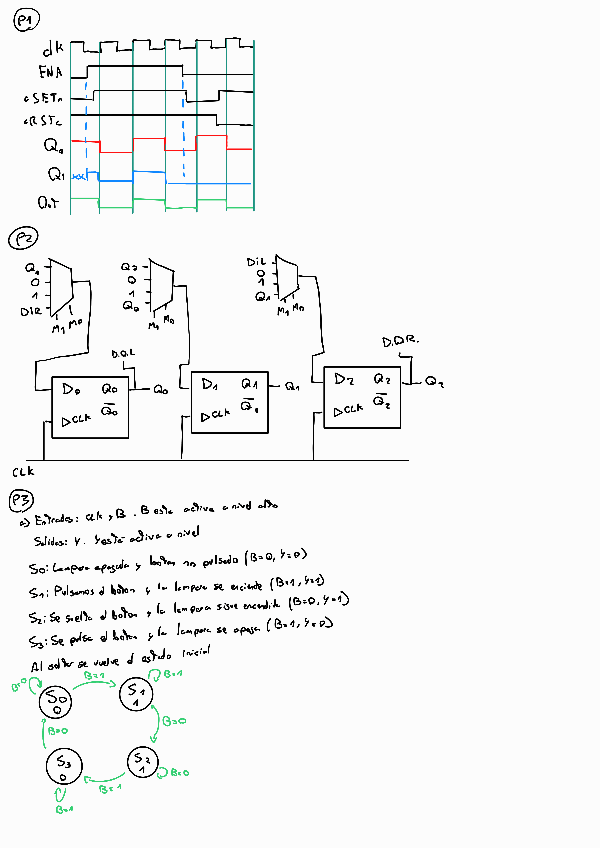 P1
clk
ENA
Q1
OUT
P2
Q1
0
1
DIR
M1 M0
Q2
0
1
Q0
M1 M0
DIL
0
1
Q1
M1 M0
D.O.L
D.O.R.
D0 Q0
CLK Q0
Q0
D1 Q1
CLK
Q1
D2 Q2
CLK Q2
Q2
CLK
P3
a) Entradas: clk y B. B esta activa a nivel alto
Salidas: Y. Y esta activa a nivel
S0: Lampara apagada y boton no pulsado (B=0, Y=0)
S1: Pulsamos el boton y la lampara se enciende (B=1, Y=1)
S2: Se suelta el boton y la lampara sigue encendida (B=0, Y=1)
S3: Se pulsa el boton y la lampara se apaga (B=1, Y=0)
Al soltar se vuelve al estado inicial
B=0
S0
0
B=1
S1
1
B=1
B=0
B=0
S3
0
B=1
B=1
S2
1
B=0